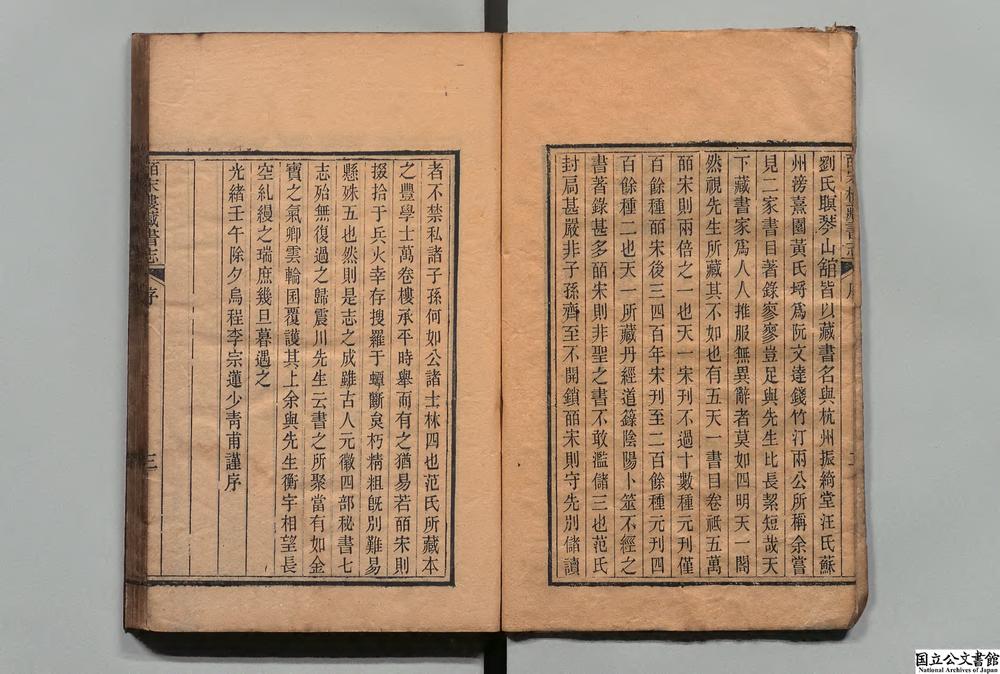 劉氏眠琴山館皆以藏書名與杭州振綺堂汪氏蘇
州滂熹園黃氏埒爲阮文達錢竹汀兩公所稱余嘗
見二家書目著錄寥寥豈足與先生比長絜短哉天
下藏書家爲人人推服無異辭者莫如四明天一閣
然視先生所藏其不如也有五天一書目卷祗五萬
皕宋則兩倍之一也天一宋刊不過十數種元刊僅
百餘種皕宋後三四百年宋刊至二百餘種元刊四
百餘種二也天一所藏丹經道籙陰陽卜筮不經之
書著錄甚多皕宋則非聖之書不敢濫儲三也范氏
封扃甚嚴非子孫齊至不開鎖皕宋則守先別儲讀
者不禁私諸子孫何如公諸士林四也范氏所藏本
之豐學士萬卷樓承平時舉而有之猶易若皕宋則
掇拾于兵火幸存搜羅于蟫斷炱朽精粗旣別難易
縣殊五也然則是志之成雖古人元徽四部秘書七
志殆無復過之歸震川先生云書之所聚當有如金
寶之氣卿雲輪囷覆護其上余與先生衡宇相望長
空糺縵之瑞庶幾旦暮遇之
光緒壬午除夕烏程李宗蓮少靑甫謹序
皕宋樓藏書志
序
三
国立公文書館
National Archives of Japan